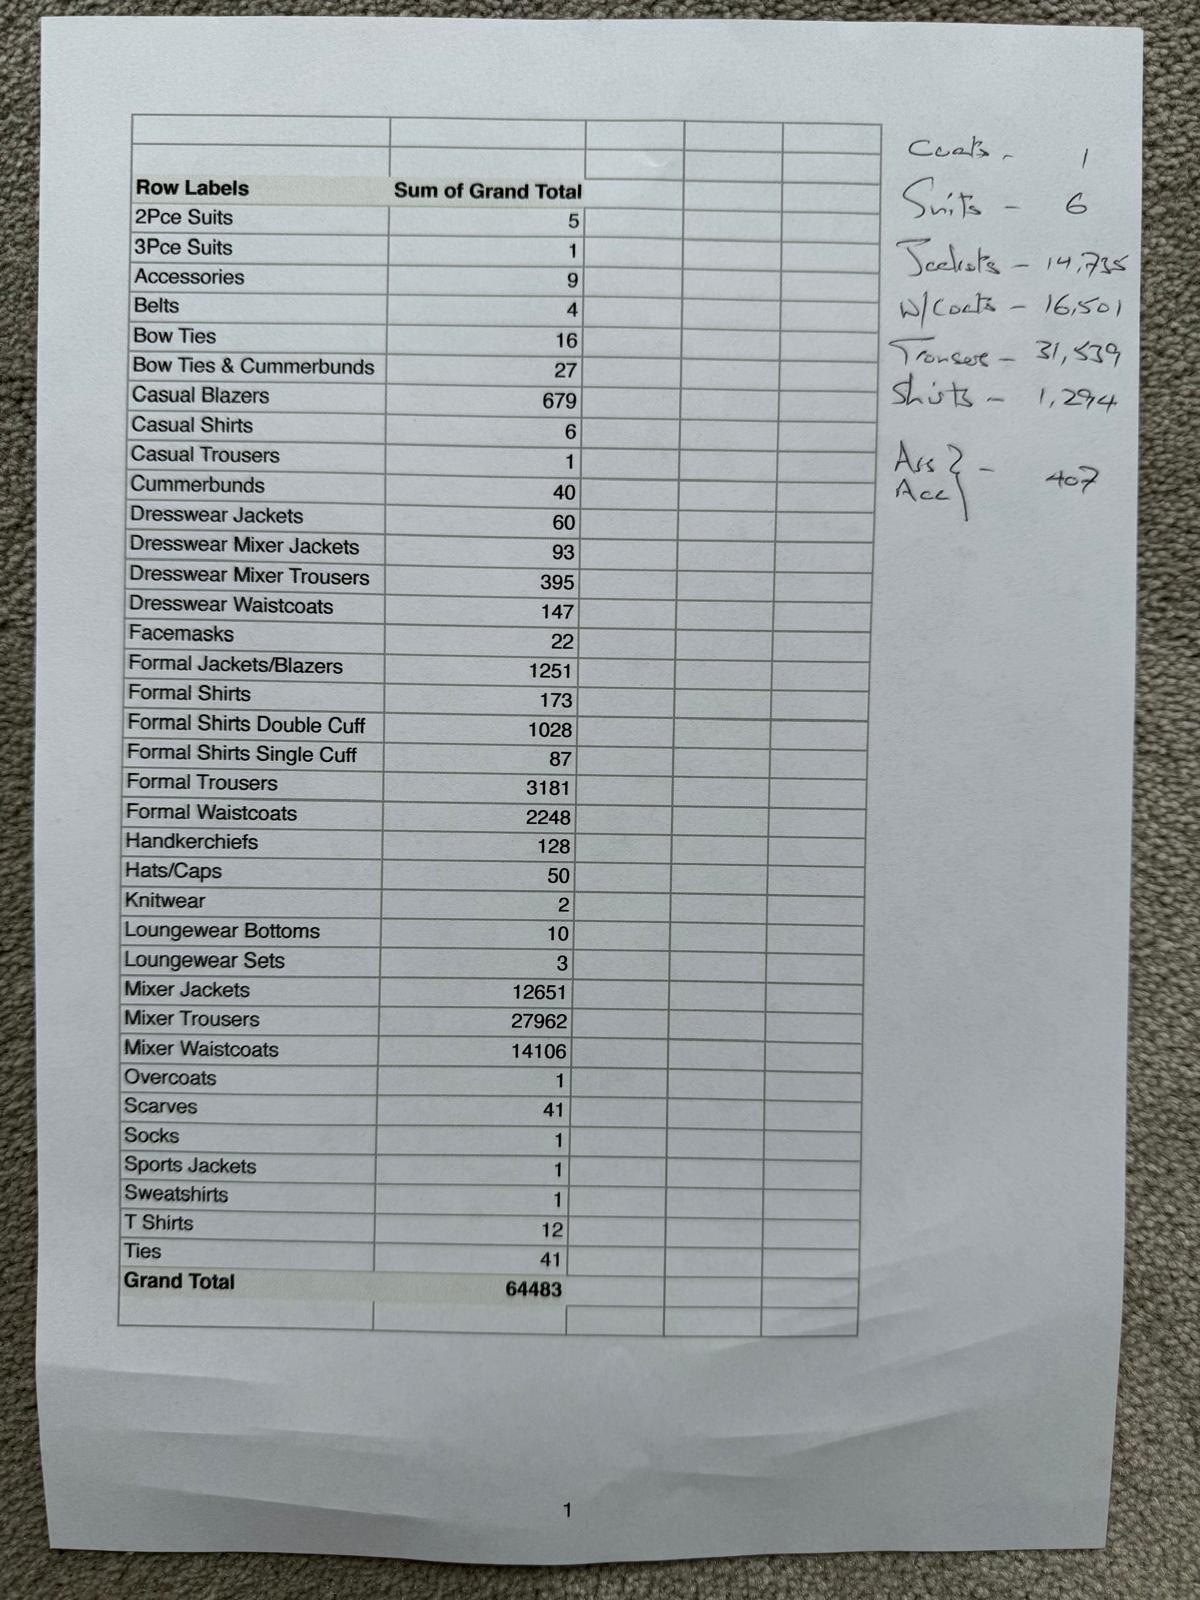 Row Labels Sum of Grand Total
2Pce Suits 5
3Pce Suits 1
Accessories 9
Belts 4
Bow Ties 16
Bow Ties & Cummerbunds 27
Casual Blazers 679
Casual Shirts 6
Casual Trousers 1
Cummerbunds 40
Dresswear Jackets 60
Dresswear Mixer Jackets 93
Dresswear Mixer Trousers 395
Dresswear Waistcoats 147
Facemasks 22
Formal Jackets/Blazers 1251
Formal Shirts 173
Formal Shirts Double Cuff 1028
Formal Shirts Single Cuff 87
Formal Trousers 3181
Formal Waistcoats 2248
Handkerchiefs 128
Hats/Caps 50
Knitwear 2
Loungewear Bottoms 10
Loungewear Sets 3
Mixer Jackets 12651
Mixer Trousers 27962
Mixer Waistcoats 14106
Overcoats 1
Scarves 41
Socks 1
Sports Jackets 1
Sweatshirts 1
T Shirts 12
Ties 41
Grand Total 64483
1
Coats - 1
Suits - 6
Jackets - 14,735
W/Coats - 16,501
Trousers - 31,539
Shirts - 1,294
Ass } - 407
Acc